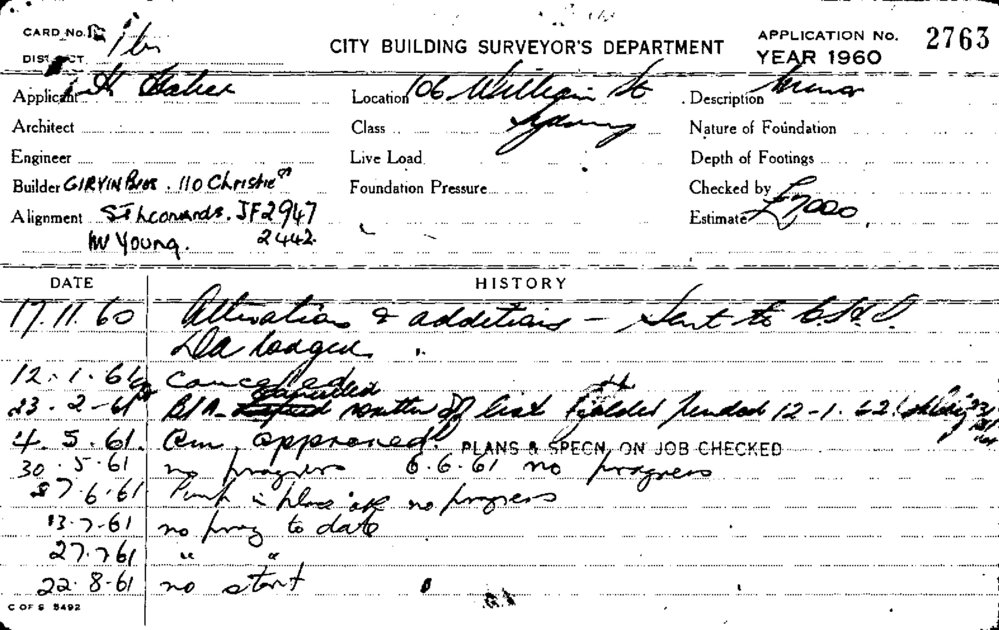 CARD No.
DISTRICT
CITY BUILDING SURVEYOR'S DEPARTMENT
APPLICATION No. 2763
YEAR 1960
Applicant
Location 106 William St
Description
Architect
Class Sydney
Nature of Foundation
Engineer
Live Load
Depth of Footings
Builder GIRVIN Bros. 110 Christie
Foundation Pressure
Checked by
Alignment St Leonards. JF2947
Estimate £7000
Mr Young. 2442.
DATE HISTORY
17.11.60 Alterations & additions - Sent to
Da lodged
12.1.61 Cancelled
23.2.61 list 12-1.62
4.5.61. approved PLANS & SPECN. ON JOB CHECKED
30.5.61 no progress 6.6.61 no progress
27.6.61 in place no progress
13.7.61 no prog to date
27.7.61 " "
22.8.61 no start
C OF S 5492